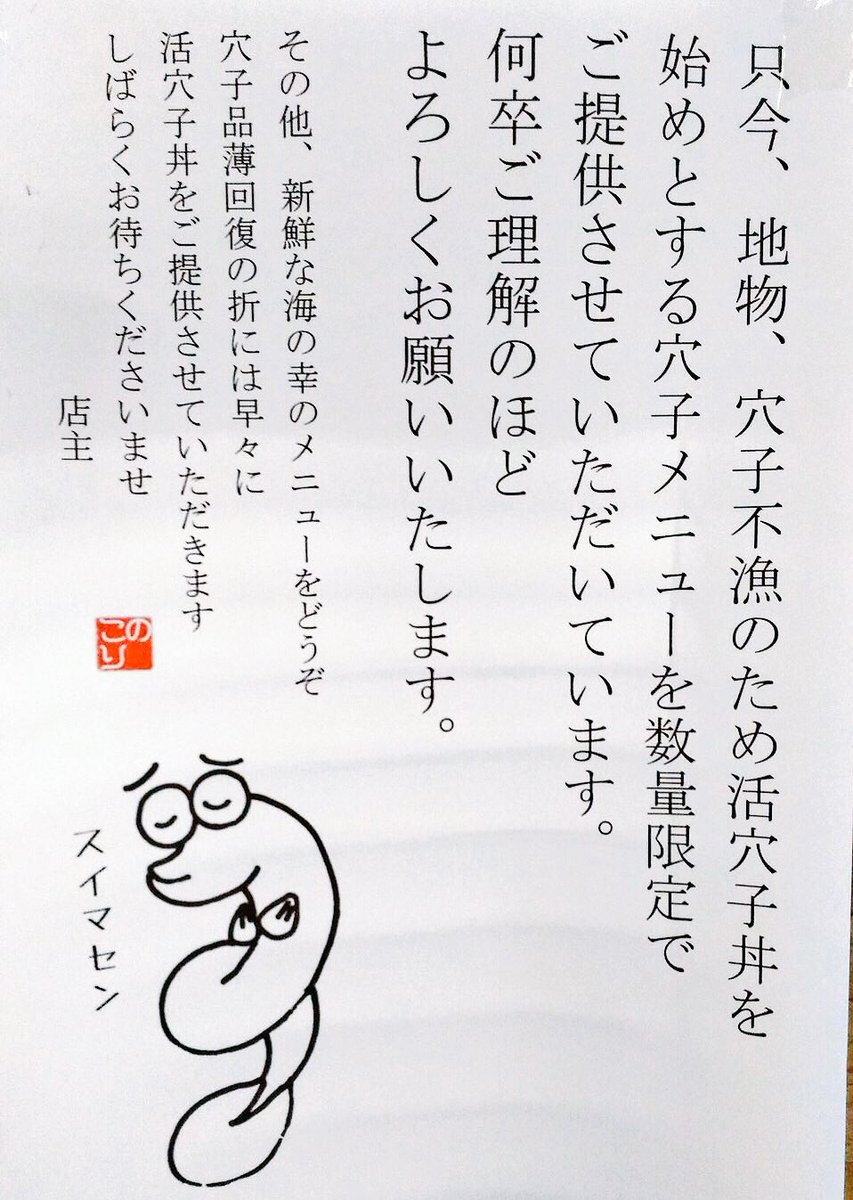 只今、地物、穴子不漁のため活穴子丼を
始めとする穴子メニューを数量限定で
ご提供させていただいています。
何卒ご理解のほど
よろしくお願いいたします。
その他、新鮮な海の幸のメニューをどうぞ
穴子品薄回復の折には早々に
活穴子丼をご提供させていただきます
しばらくお待ちくださいませ
店主
のこり
スイマセン